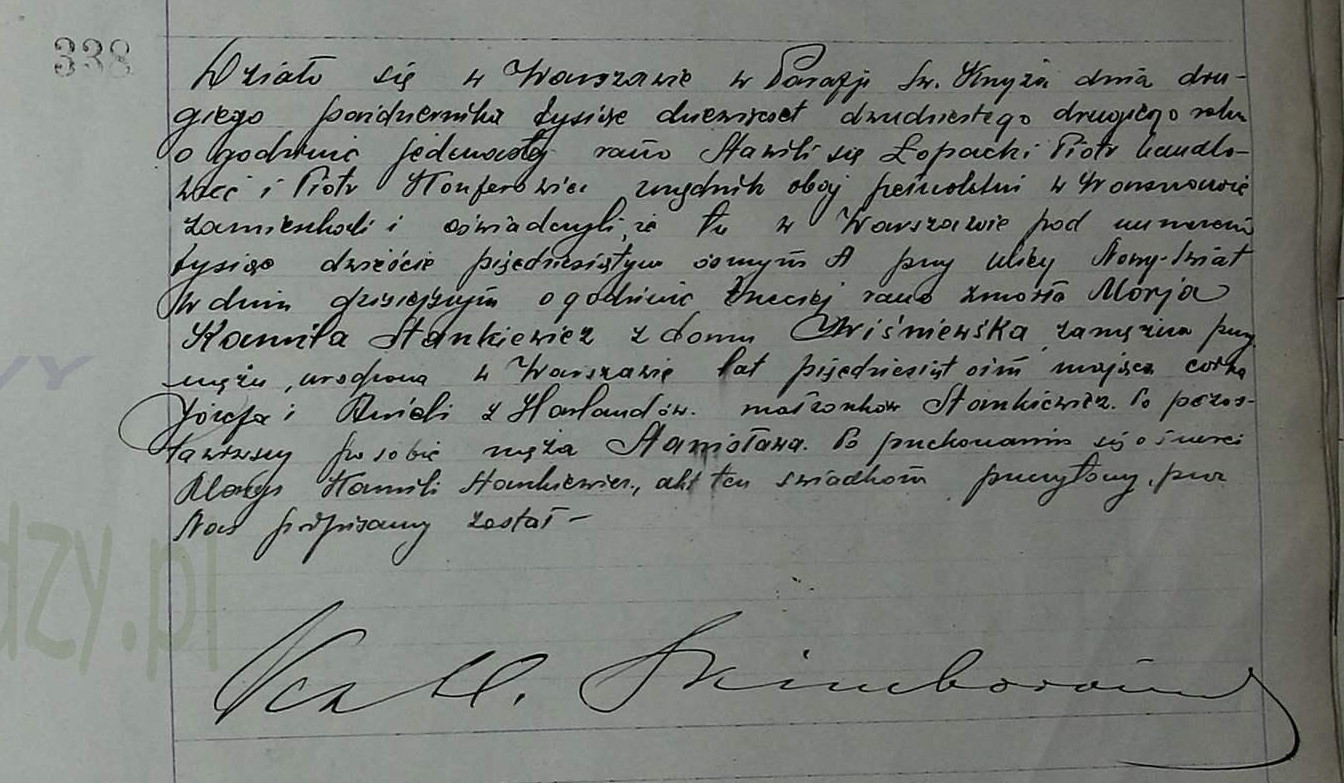 338
Działo się w Warszawie w Parafji św. Krzyża dnia dru-
giego października tysiąc dziewięćset dwudziestego drugiego roku
o godzinie jedenastej rano Stawili się Łopacki Piotr handlo-
wiec i Piotr urzędnik obaj pełnoletni w Warszawie
zamieszkali i oświadczyli, że tu w Warszawie pod numerem
tysiąc dwieście pięćdziesiątym ósmym A przy ulicy Nowy-Świat
w dniu dzisiejszym o godzinie trzeciej rano zmarła Marja
Kamila Stankiewicz z domu Wiśniewska, zamężna przy
mężu, urodzona w Warszawie lat pięćdziesiąt ośm mająca córka
Józefa i Anieli z małżonków Stankiewicz. Po pozos-
tawiwszy po sobie męża Stanisława. Po przekonaniu się o śmierci
Maryi Kamili Stankiewicz, akt ten świadkom przeczytany, przez
Nas podpisany został —